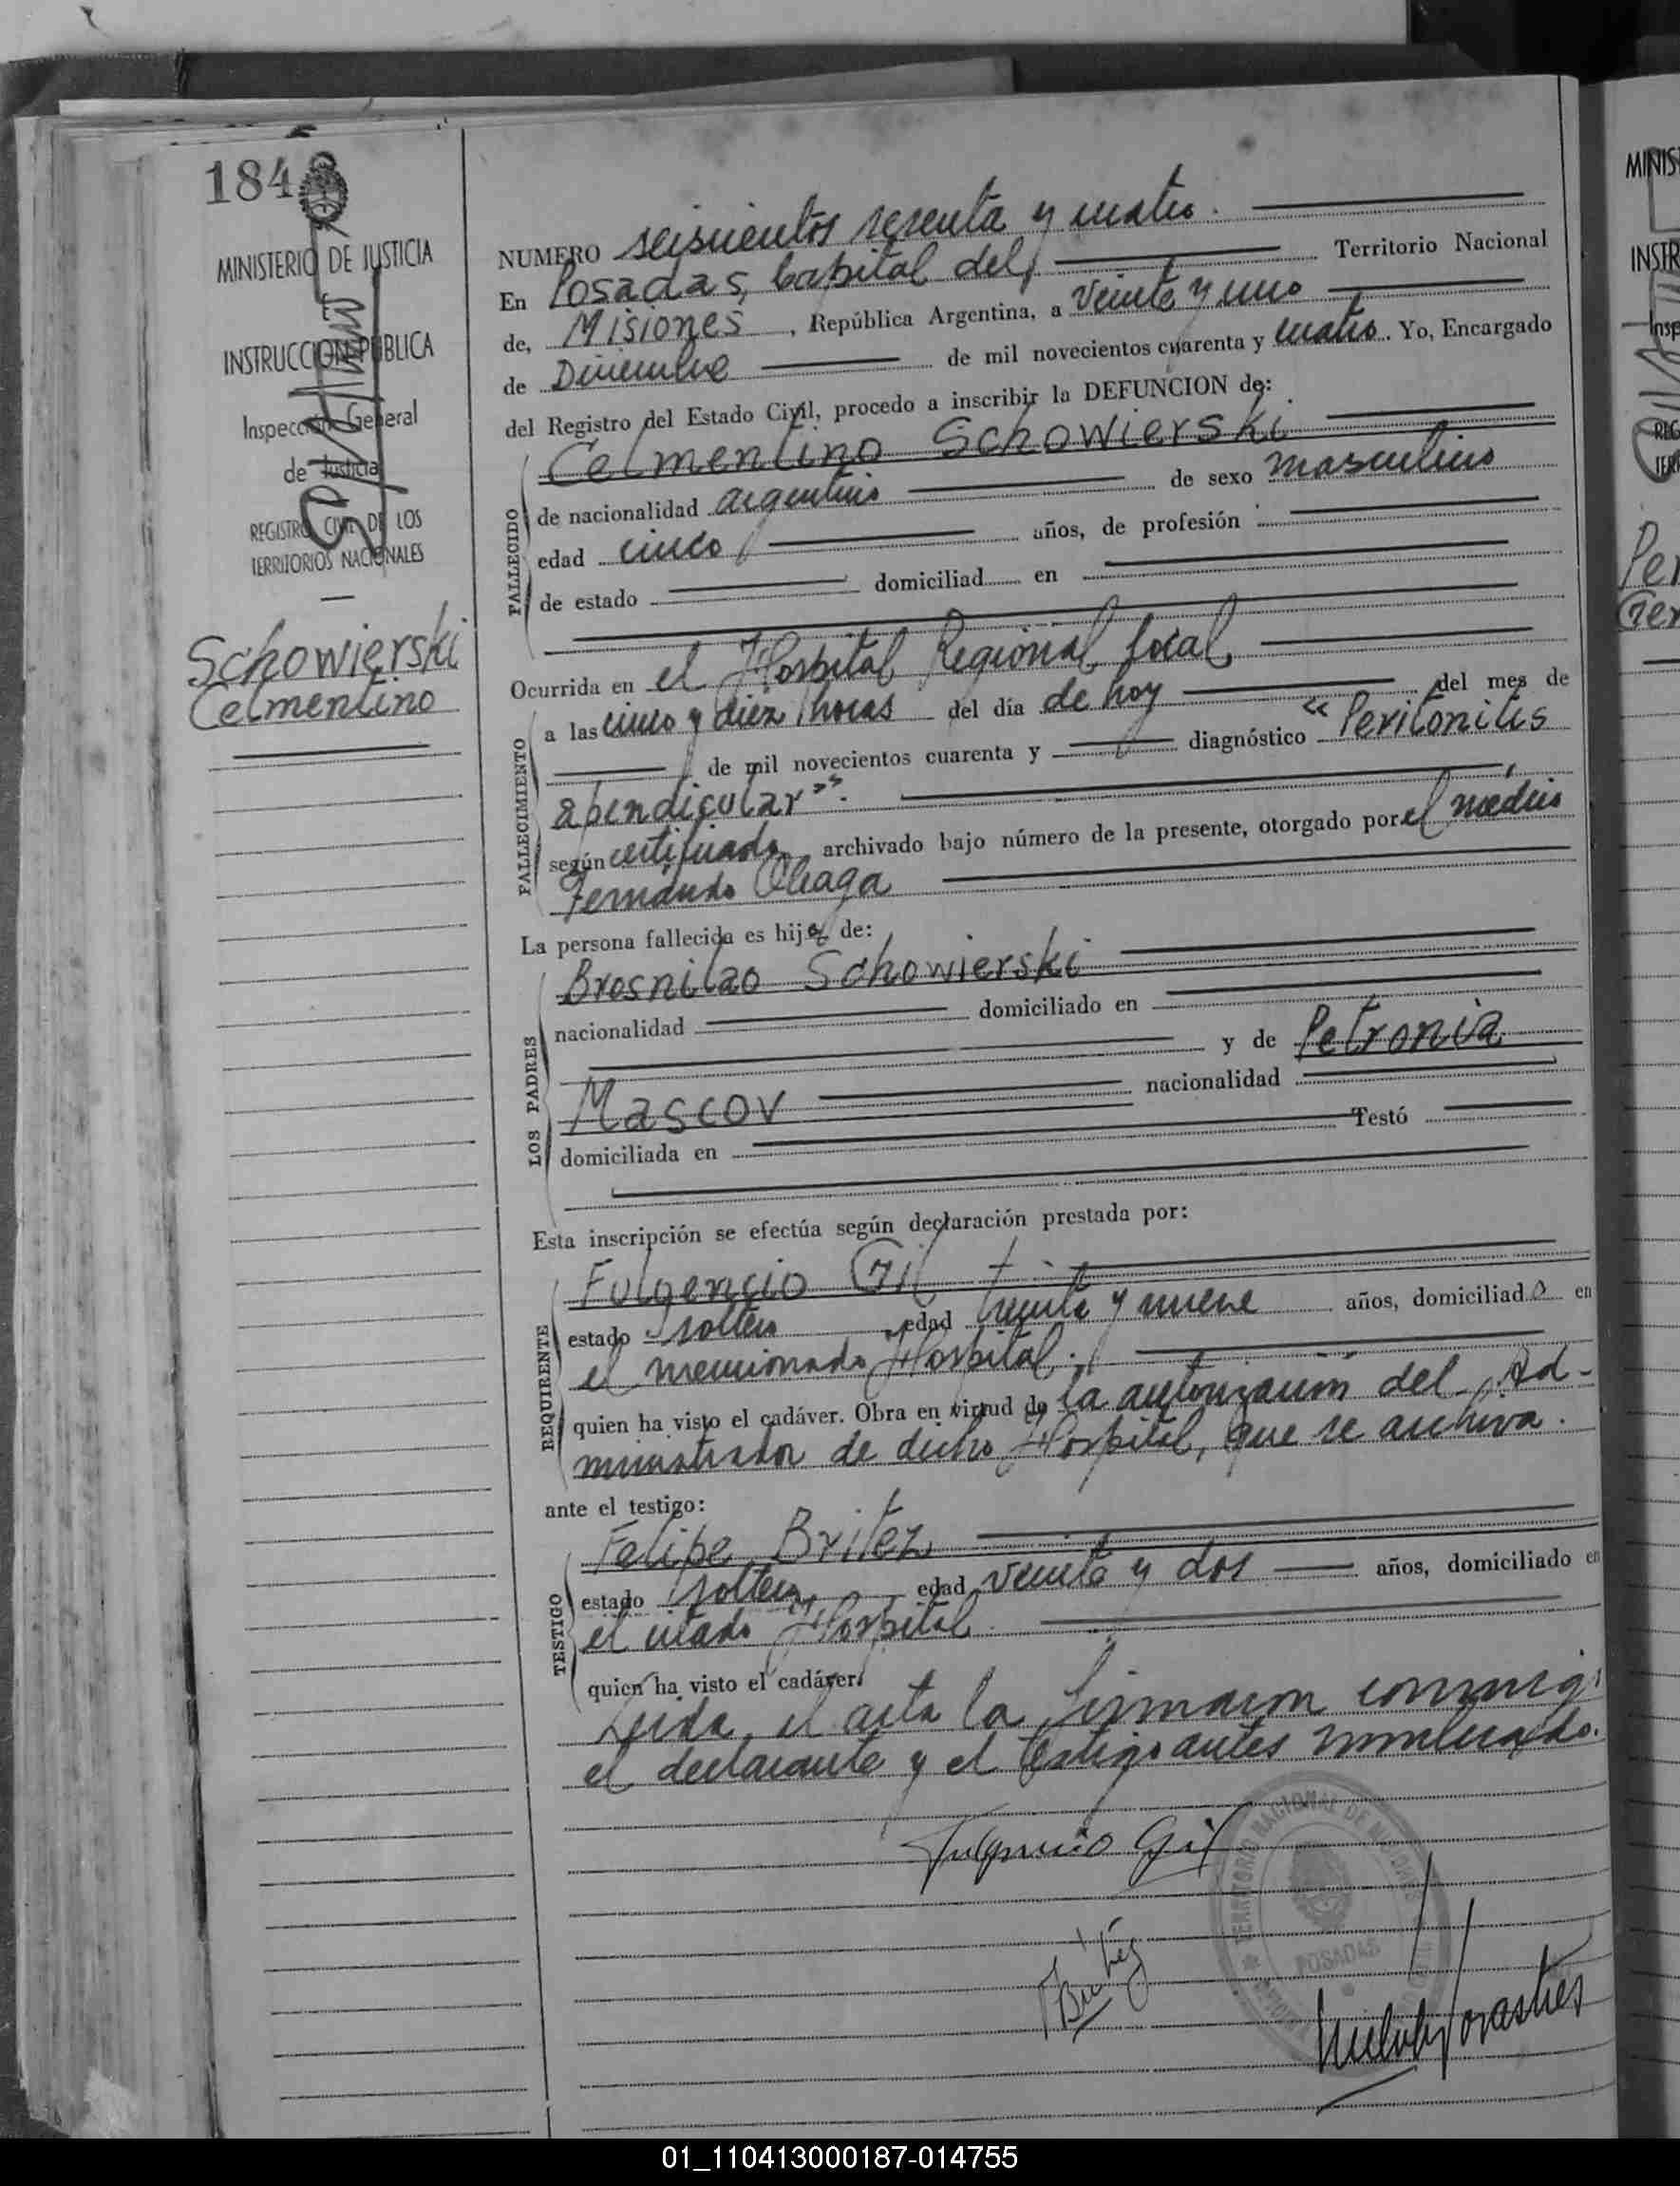 184
MINISTERIO DE JUSTICIA
INSTRUCCION PUBLICA
Inspección General
de Justicia
REGISTRO CIVIL DE LOS
TERRITORIOS NACIONALES
Schowierski
Celmentino
NUMERO seiscientos sesenta y cuatro.
En Posadas, Capital del Territorio Nacional
de, Misiones, República Argentina, a veinte y uno
de Diciembre de mil novecientos cuarenta y cuatro. Yo, Encargado
del Registro del Estado Civil, procedo a inscribir la DEFUNCION de:
Celmentino Schowierski
FALLECIDO
de nacionalidad argentino de sexo masculino
edad cinco años, de profesión
de estado domiciliad en
Ocurrida en el Hospital Regional local
FALLECIMIENTO
a las cinco y diez horas del día de hoy del mes de
de mil novecientos cuarenta y diagnóstico "Peritonitis
apendicular".
según certificado archivado bajo número de la presente, otorgado por el médico
Fernando Oliaga
La persona fallecida es hijo de:
LOS PADRES
Brosnilao Schowierski
nacionalidad domiciliado en
y de Petronia
Mascov nacionalidad
domiciliada en Testó
Esta inscripción se efectúa según declaración prestada por:
REQUIRENTE
Fulgencio Gil
estado soltero edad treinta y nueve años, domiciliado en
el mencionado Hospital.
quien ha visto el cadáver. Obra en virtud de la autorización del Ad-
ministrador de dicho Hospital, que se archiva.
ante el testigo:
TESTIGO
Felipe Britez
estado soltero edad veinte y dos años, domiciliado en
el citado Hospital.
quien ha visto el cadáver.
Leída el acta la firmaron conmigo
el declarante y el testigo antes nombrado.
Fulgencio Gil
FBritez
TERRITORIO NACIONAL DE MISIONES
POSADAS
MINIS
INSTR
Insp
REG
TERR
01_110413000187-014755